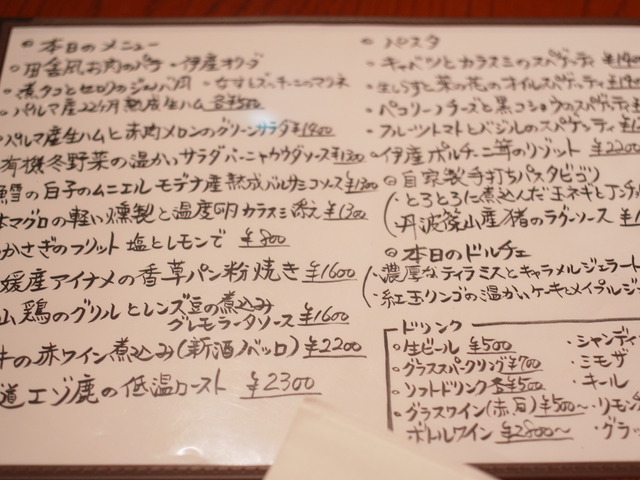 本日のメニュー
・田舎風お肉のパテ ・伊産オリーブ
・煮タコとセロリのジェノバ風 ・なすとズッキーニのマリネ
・パルマ産22ヶ月熟成生ハム 各¥500
パルマ産生ハムと赤肉メロンのグリーンサラダ ¥1900
有機冬野菜の温かいサラダ バーニャカウダソース ¥1300
鱈の白子のムニエル モデナ産熟成バルサミコソース ¥1300
本マグロの軽い燻製と温度卵 カラスミ添え ¥1300
かさぎのフリット 塩とレモンで ¥800
媛産アイナメの香草パン粉焼き ¥1600
山鶏のグリルとレンズ豆の煮込み
グレモラータソース ¥1600
牛の赤ワイン煮込み(新酒ノベッロ) ¥2200
道エゾ鹿の低温ロースト ¥2300
パスタ
・キャベツとカラスミのスパゲッティ
・生しらすと菜の花のオイルスパゲッティ
・ペコリーノチーズと黒コショウのスパゲッティ
・フルーツトマトとバジルのスパゲッティ
・伊産ポルチーニ茸のリゾット ¥2200
自家製手打ちパスタ ピゴリ
・とろとろに煮込んだ玉ネギとアンチ
丹波篠山産猪のラグーソース
本日のドルチェ
・濃厚なティラミスとキャラメルジェラート
・紅玉リンゴの温かいケーキとメイプルジ
ドリンク
・生ビール ¥500 ・シャンディ
・グラススパークリング ¥700 ・ミモザ
・ソフトドリンク 各¥500 ・キール
・グラスワイン(赤,白) ¥500〜 ・リモン
ボトルワイン ¥2800〜 ・グラッ